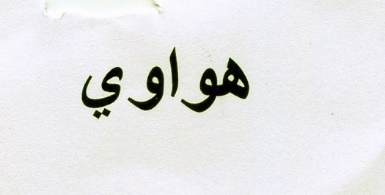 هواوي